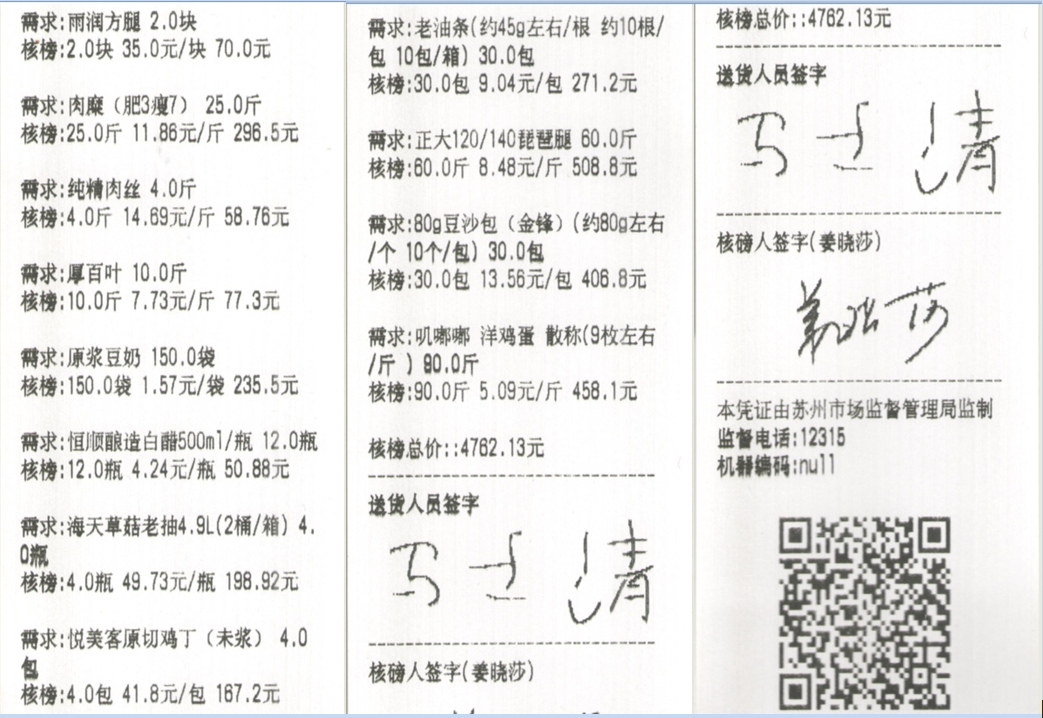 需求:雨润方腿 2.0块
核榜:2.0块 35.0元/块 70.0元
需求:肉糜（肥3瘦7） 25.0斤
核榜:25.0斤 11.86元/斤 296.5元
需求:纯精肉丝 4.0斤
核榜:4.0斤 14.69元/斤 58.76元
需求:厚百叶 10.0斤
核榜:10.0斤 7.73元/斤 77.3元
需求:原浆豆奶 150.0袋
核榜:150.0袋 1.57元/袋 235.5元
需求:恒顺酿造白醋500ml/瓶 12.0瓶
核榜:12.0瓶 4.24元/瓶 50.88元
需求:海天草菇老抽4.9L(2桶/箱) 4.
0瓶
核榜:4.0瓶 49.73元/瓶 198.92元
需求:悦美客原切鸡丁（未浆） 4.0
包
核榜:4.0包 41.8元/包 167.2元
需求:老油条(约45g左右/根 约10根/
包 10包/箱) 30.0包
核榜:30.0包 9.04元/包 271.2元
需求:正大120/140琵琶腿 60.0斤
核榜:60.0斤 8.48元/斤 508.8元
需求:80g豆沙包（金锋）(约80g左右
/个 10个/包) 30.0包
核榜:30.0包 13.56元/包 406.8元
需求:叽嘟嘟 洋鸡蛋 散称(9枚左右
/斤 ) 90.0斤
核榜:90.0斤 5.09元/斤 458.1元
核榜总价::4762.13元
送货人员签字
核磅人签字(姜晓莎)
核榜总价::4762.13元
送货人员签字
核磅人签字(姜晓莎)
姜晓莎
本凭证由苏州市场监督管理局监制
监督电话:12315
机器编码:null